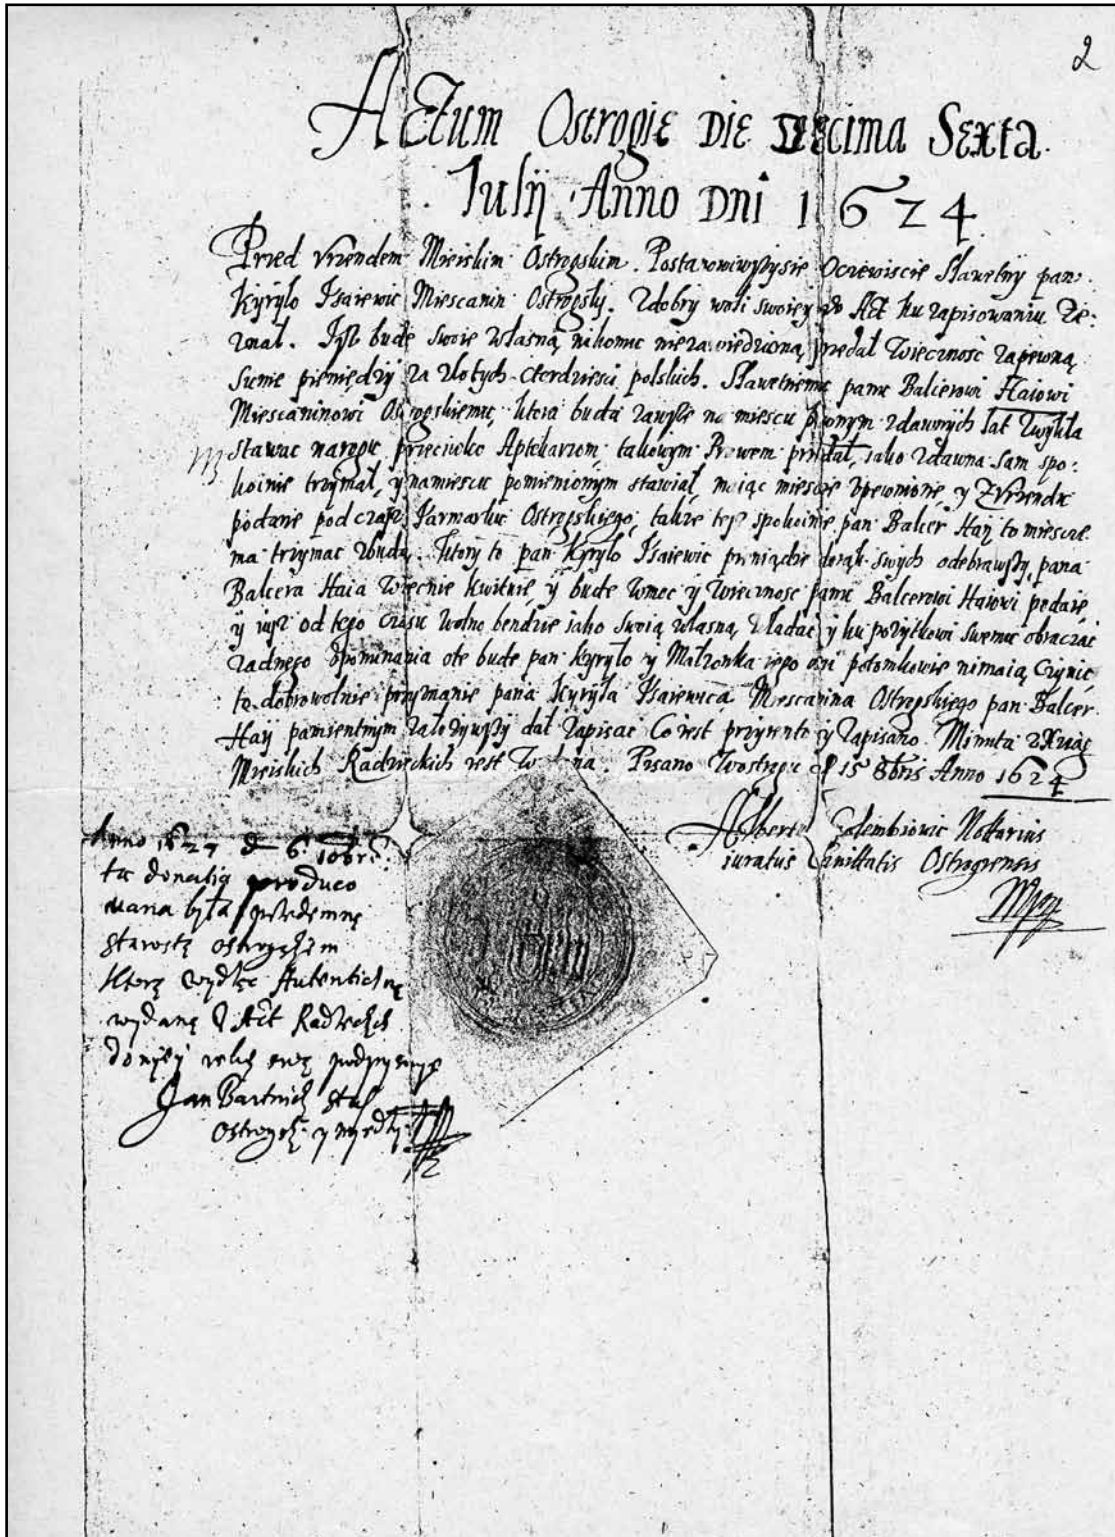 2
Actum Ostrogie Die Decima Sexta
Iulij Anno Dni 1624
Przed Vrzendem Mieiskim Ostrogskim. Postanowiwszysie Oczewiscie Slawetny pan
Kyryło Isaiewic Miescanin Ostrogsky. Zdobry woli swoiey do Act ku zapisowaniu Ze:
znał. Isz bude swoie własną, nikomu niezawiedzioną, przedał Wieczność zapewną
Sume pieniędzy za złotych czterdziesci polskich. Sławetnemu panu Balcerowi Haiowi
Miescaninowi Ostrogskiemu, ktora buda zawsze na miescu pewnym zdawnych lat zwykła
stawac narogu przeciwko Aptekarzom, takowym Prawem przedał, iako zdawna sam spo:
koinie trzymał, y namiescu pomienionym stawiał, maiąc miesce vpewnione, y Zvrzendu
podane pod czas Iarmarku Ostrogskiego, takze tesz spokoinie pan Balcer Hay to miesce
ma trzymac zbudą. Ktory to pan Kyryło Isaiewic pieniądze dorąk swych odebrawszy, pana
Balcera Haia Wiecnie kwituie, y bude wmoc y Wiecznosc panu Balcerowi Haiowi podaie,
y iusz od tego czasu wolno bendzie iako swoią własną, władac y ku pożytkowi swemu obraczac
zadnego vpominania ote bude pan Kyryło y Małzonka iego ani potomkowie nimaią Czynic,
to dobrowolnie przyznanie pana Kyryła Isaiewica Miescanina Ostrogskiego pan Balcer
Hay pamientnym założywszy dał zapisac Co iest przyiento y zapisano. Minuta z Xiąg
Mieiskich Radzieckich iest. Pisano Wostrogu d 15 8bris Anno 1624
Albertus Zalembiowic Nottarius
iuratus Civittatis Ostrogiensis
Anno 1627 d 6 10bris
ta donatia produco
wana była przedemną
starostą ostrogskim
Ktorą Autenticzną
wydaną z Act Radzieckich
ręką swą podpisuję
Jan Bartnicki